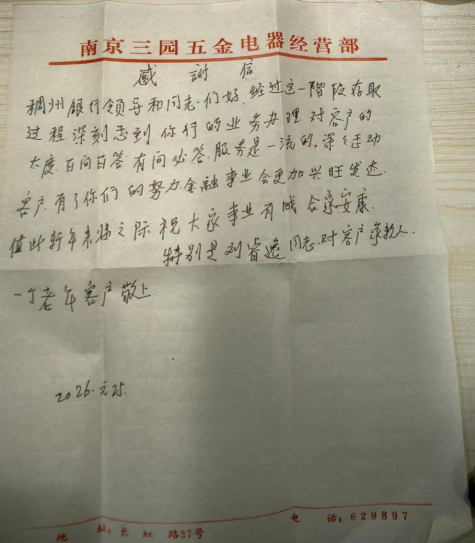 南京三园五金电器经营部
感謝信
稠州银行领导和同志们好.经过这一階段存取
过程深刻感到你行的业务办理对客户的
太度百问百答有问必答.服务是一流的.深深感动
客户.有了你们的努力金融事业会更加兴旺发达.
值此新年来临之际祝大家事业有成合家安康.
特别是刘睿逸同志.对客户亲热人.
一个老年客户敬上
2026.元.25.
地 址:长虹 路37号
电 话:629897